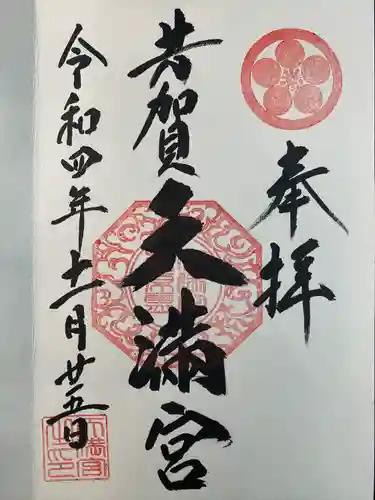 奉拝
共賀天満宮
令和四年十一月廿五日